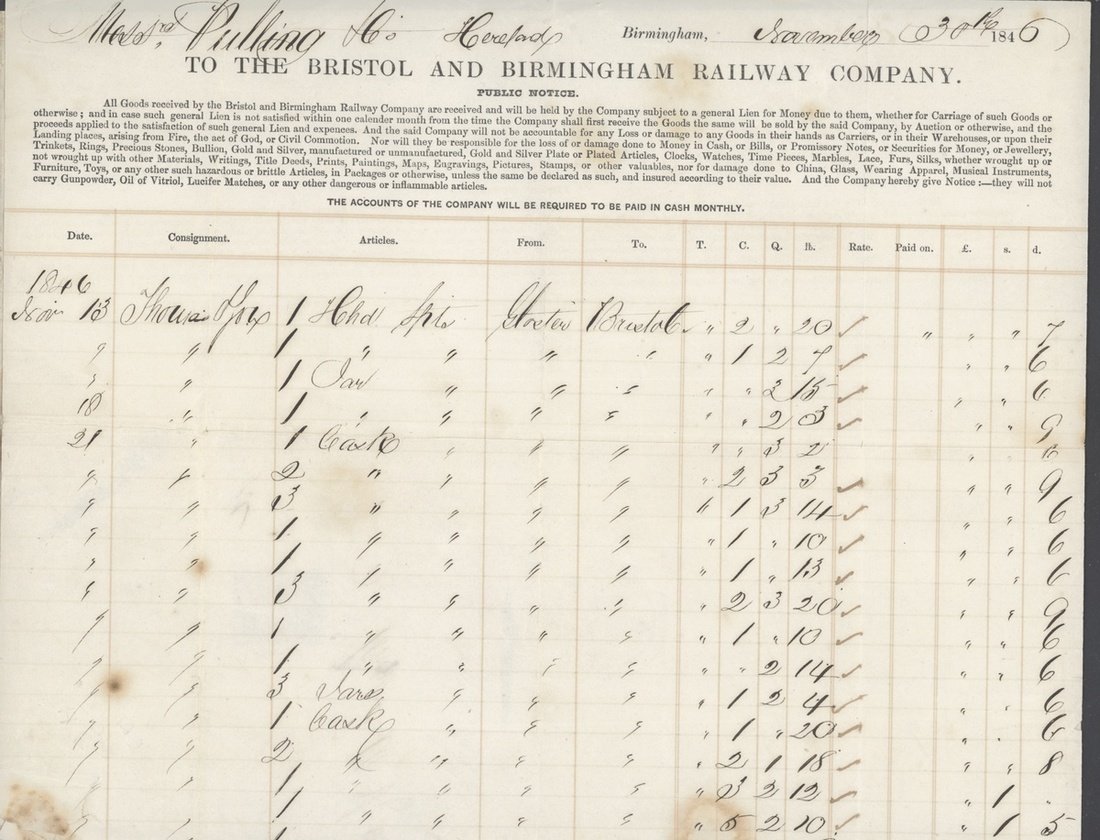 Messrs. Pulling & Co Hereford Birmingham, November 30th 1846
TO THE BRISTOL AND BIRMINGHAM RAILWAY COMPANY.
PUBLIC NOTICE.
All Goods received by the Bristol and Birmingham Railway Company are received and will be held by the Company subject to a general Lien for Money due to them, whether for Carriage of such Goods or
otherwise; and in case such general Lien is not satisfied within one calender month from the time the Company shall first receive the Goods the same will be sold by the said Company, by Auction or otherwise, and the
proceeds applied to the satisfaction of such general Lien and expences. And the said Company will not be accountable for any Loss or damage to any Goods in their hands as Carriers, or in their Warehouses, or upon their
Landing places, arising from Fire, the act of God, or Civil Commotion. Nor will they be responsible for the loss of or damage done to Money in Cash, or Bills, or Promissory Notes, or Securities for Money, or Jewellery,
Trinkets, Rings, Precious Stones, Bullion, Gold and Silver, manufactured or unmanufactured, Gold and Silver Plate or Plated Articles, Clocks, Watches, Time Pieces, Marbles, Lace, Furs, Silks, whether wrought up or
not wrought up with other Materials, Writings, Title Deeds, Prints, Paintings, Maps, Engravings, Pictures, Stamps, or other valuables, nor for damage done to China, Glass, Wearing Apparel, Musical Instruments,
Furniture, Toys, or any other such hazardous or brittle Articles, in Packages or otherwise, unless the same be declared as such, and insured according to their value. And the Company hereby give Notice:—they will not
carry Gunpowder, Oil of Vitriol, Lucifer Matches, or any other dangerous or inflammable articles.
THE ACCOUNTS OF THE COMPANY WILL BE REQUIRED TO BE PAID IN CASH MONTHLY.
Date. Consignment. Articles. From. To. T. C. Q. lb. Rate. Paid on. £. s. d.
1846
Nov 13 Thomas Fox 1 Hhd Spts Gloster Bristol " 2 " 20 " " " 7
" " 1 " " " " " 1 2 7 " " 6
" " 1 Jar " " " " " 3 15 " " 6
18 " 1 " " " " " " 2 3 " " 9
21 " 1 Cask " " " " " 3 2 " " 6
" " 2 " " " " " 2 3 3 " " 9
" " 3 " " " " " 1 3 14 " " 6
" " 1 " " " " " 1 " 10 " " 6
" " 1 " " " " " 1 " 13 " " 6
" " 3 " " " " " 2 3 20 " " 9
" " 1 " " " " " 1 " 10 " " 6
" " 1 " " " " " " 2 14 " " 6
" " 3 Jars " " " " 1 2 4 " " 6
" " 1 Cask " " " " 1 " 20 " " 6
" " 2 " " " " 2 1 18 " " 8
" " 1 " " " " " 3 2 12 " 1 "
" " 1 " " " " " 5 2 10 " 1 5